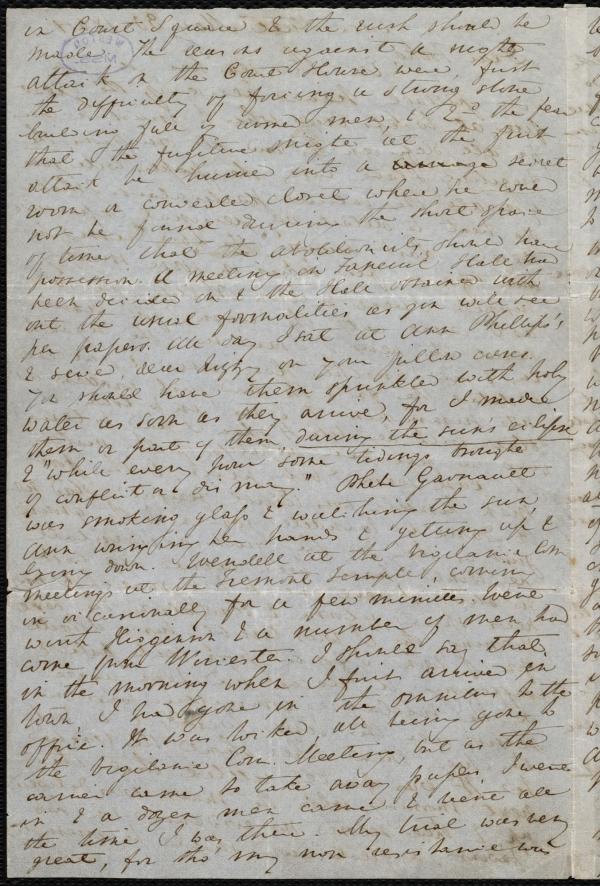 in Court Square & the rush should be
made. The reasons against a night
attack on the Court House were, first
the difficulty of forcing a strong stone
building full of armed men, & 2d the fear
that the fugitive might at the first
attack be hurried into a secret
room or concealed closet where he could
not be found during the short space
of time that the abolitionists should have
possession. A meeting in Faneuil Hall had
been decided on & the Hall obtained with
out the usual formalities as you will see
per papers. All day I sat at Ann Phillips's
& sewed dear Lizzy on your pillow cases.
You should have them sprinkled with holy
water as soon as they arrive, for I made
them or part of them, during the suns eclipse
& "while every hour some tidings brought
of conflict or dismay." Phebe Garnaut
was smoking glass & watching the sun,
Ann wringing her hands & getting up &
lying down. Wendell at the Vigilance Com
meetings at the Tremont Temple, coming
in occasionally for a few minutes. Went
with Higginson & a number of men had
come from Worcester. I should say that
in the morning when I first arrived in
town I had gone in the omnibus to the
office. It was locked, all being gone to
the Vigilance Com. Meeting, but as the
carrier came to take away papers, I went
in & a dozen men came & went all
the time I was there. My trial was very
great, for tho' my non resistance was